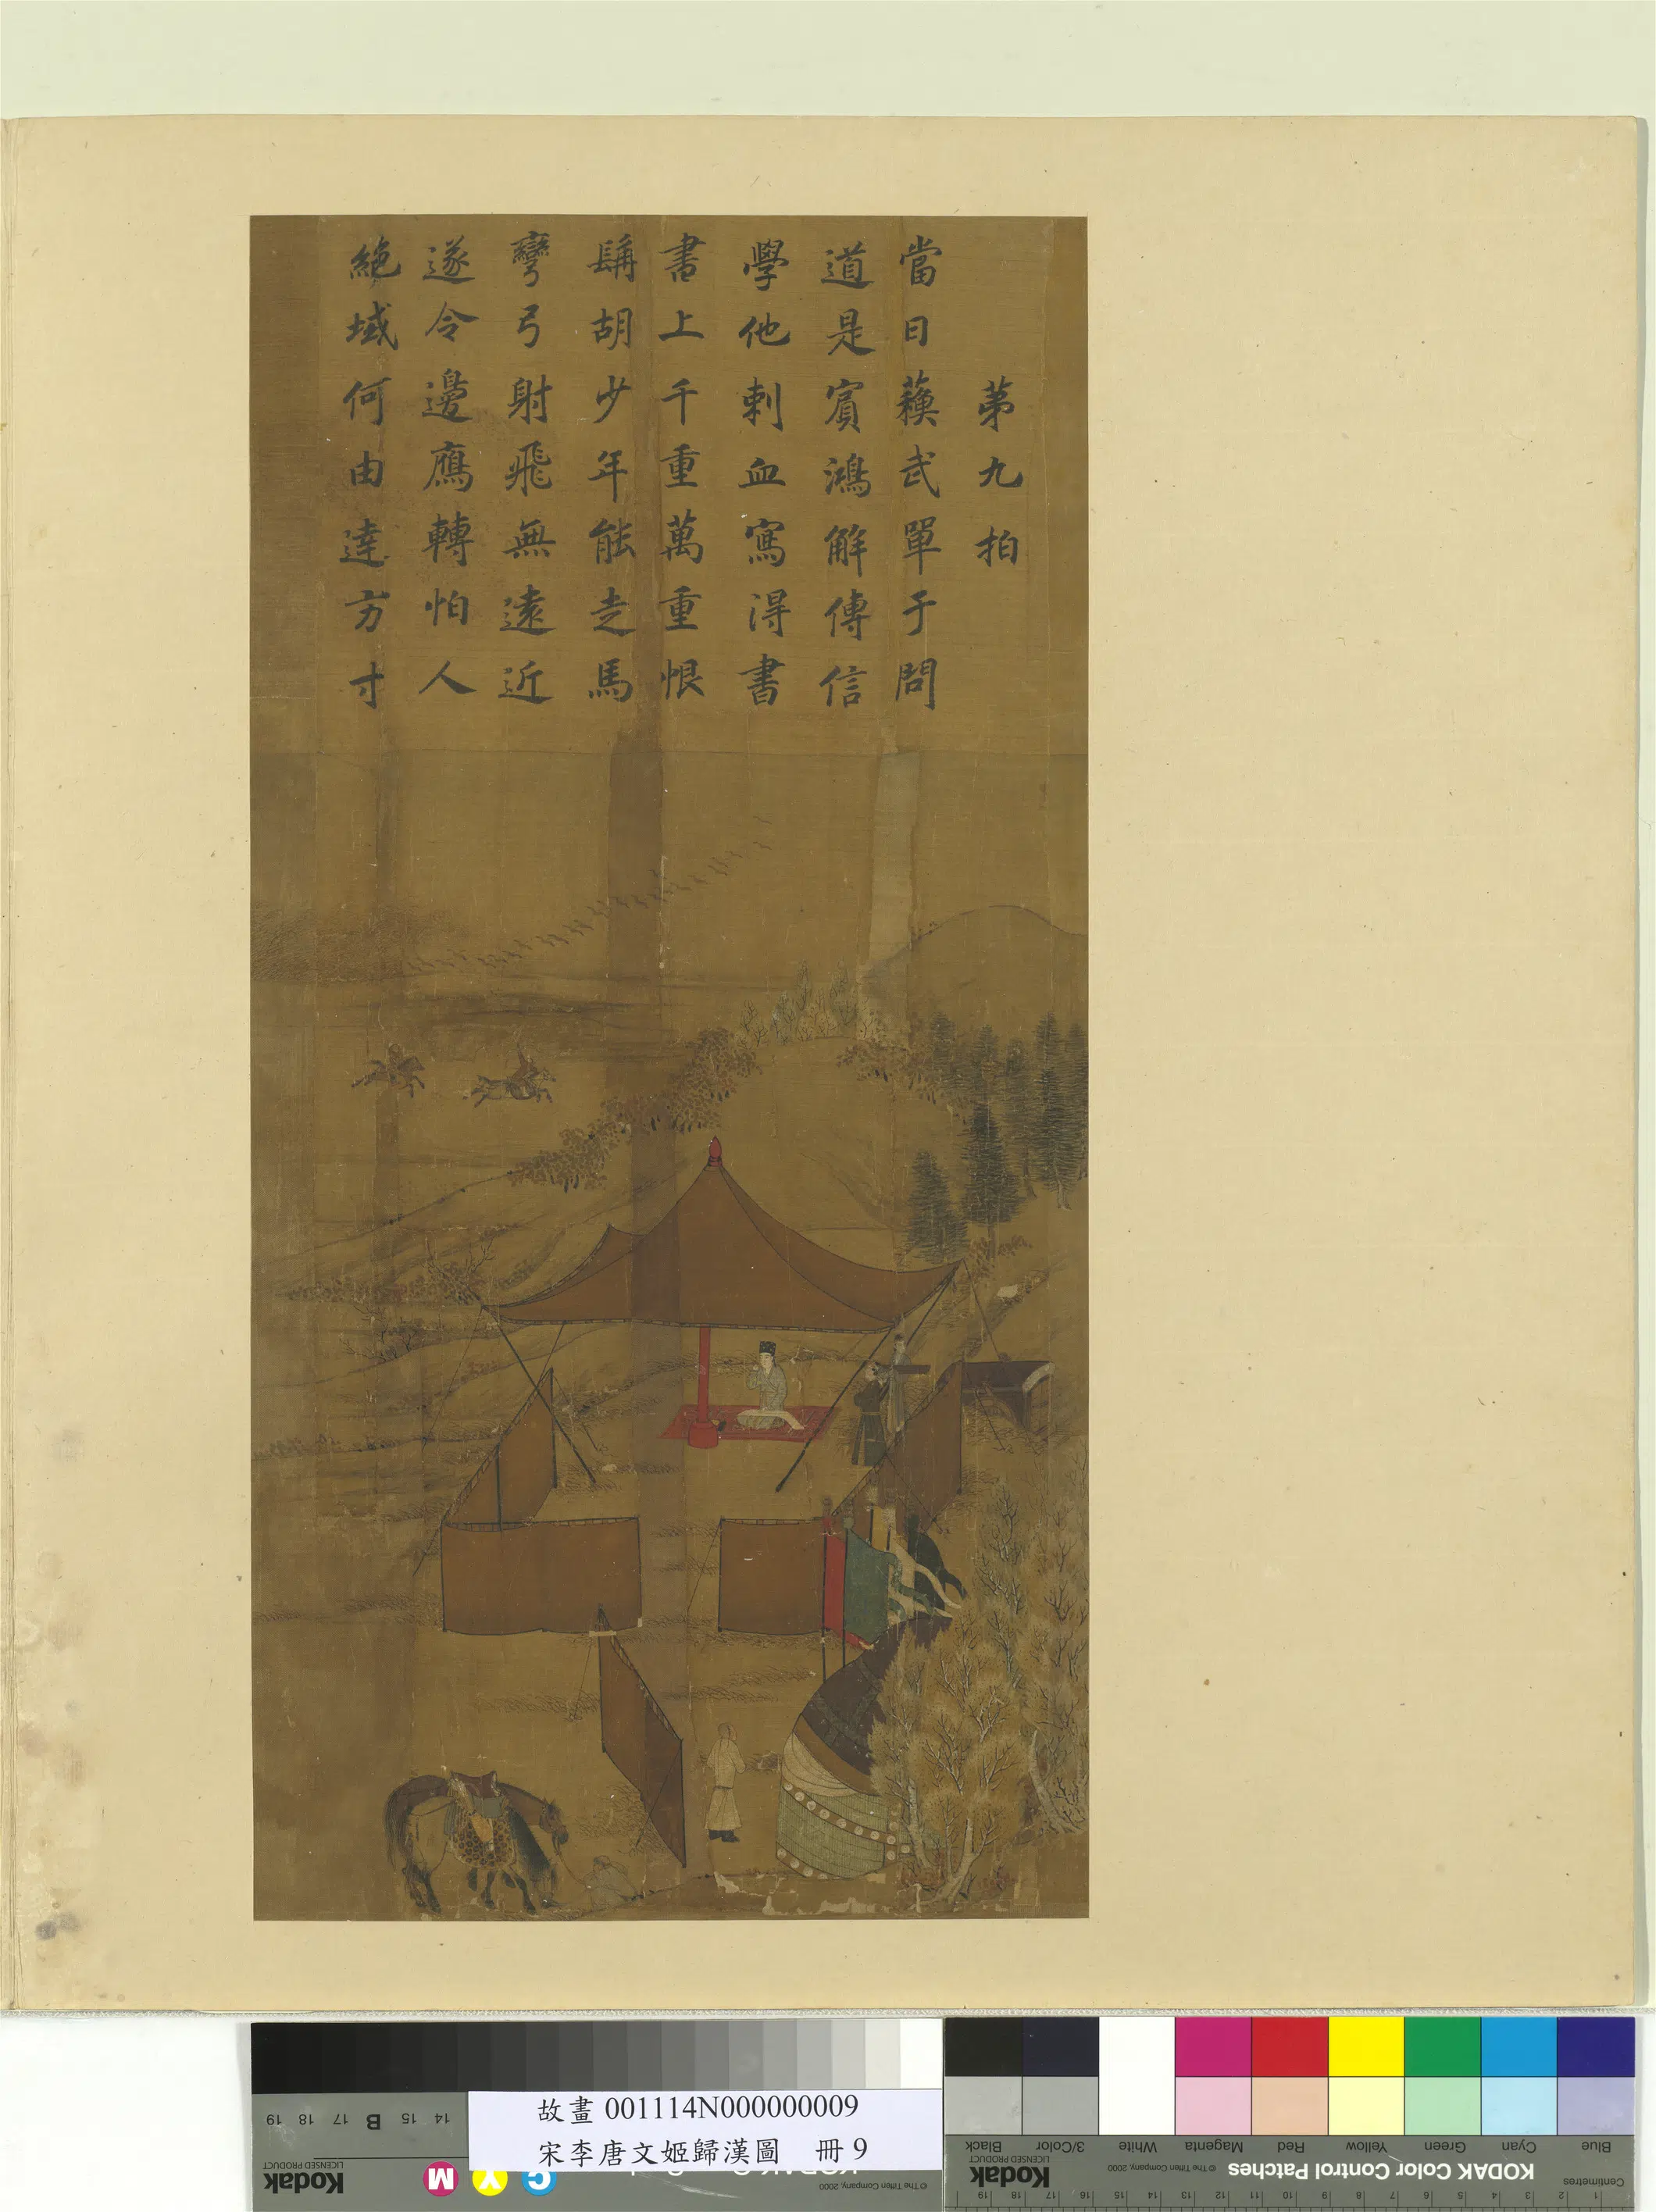 第九拍
當日蘇武單于問
道是賓鴻解傳信
學他刺血寫得書
書上千重萬重恨
髯胡少年能走馬
彎弓射飛無遠近
遂令邊鴈轉怕人
絕域何由達方寸
故畫 001114N000000009
宋李唐文姬歸漢圖 冊 9
19 18 17 B 15 14
Kodak
LICENSED PRODUCT
M Y C
© The Tiffen Company, 2000
KODAK Color Control Patches
© The Tiffen Company, 2000
Kodak
LICENSED PRODUCT
Blue Cyan Green Yellow Red Magenta White 3/Color Black
Centimetres
1 2 3 4 5 6 7 8 9 10 11 12 13 14 15 16 17 18 19